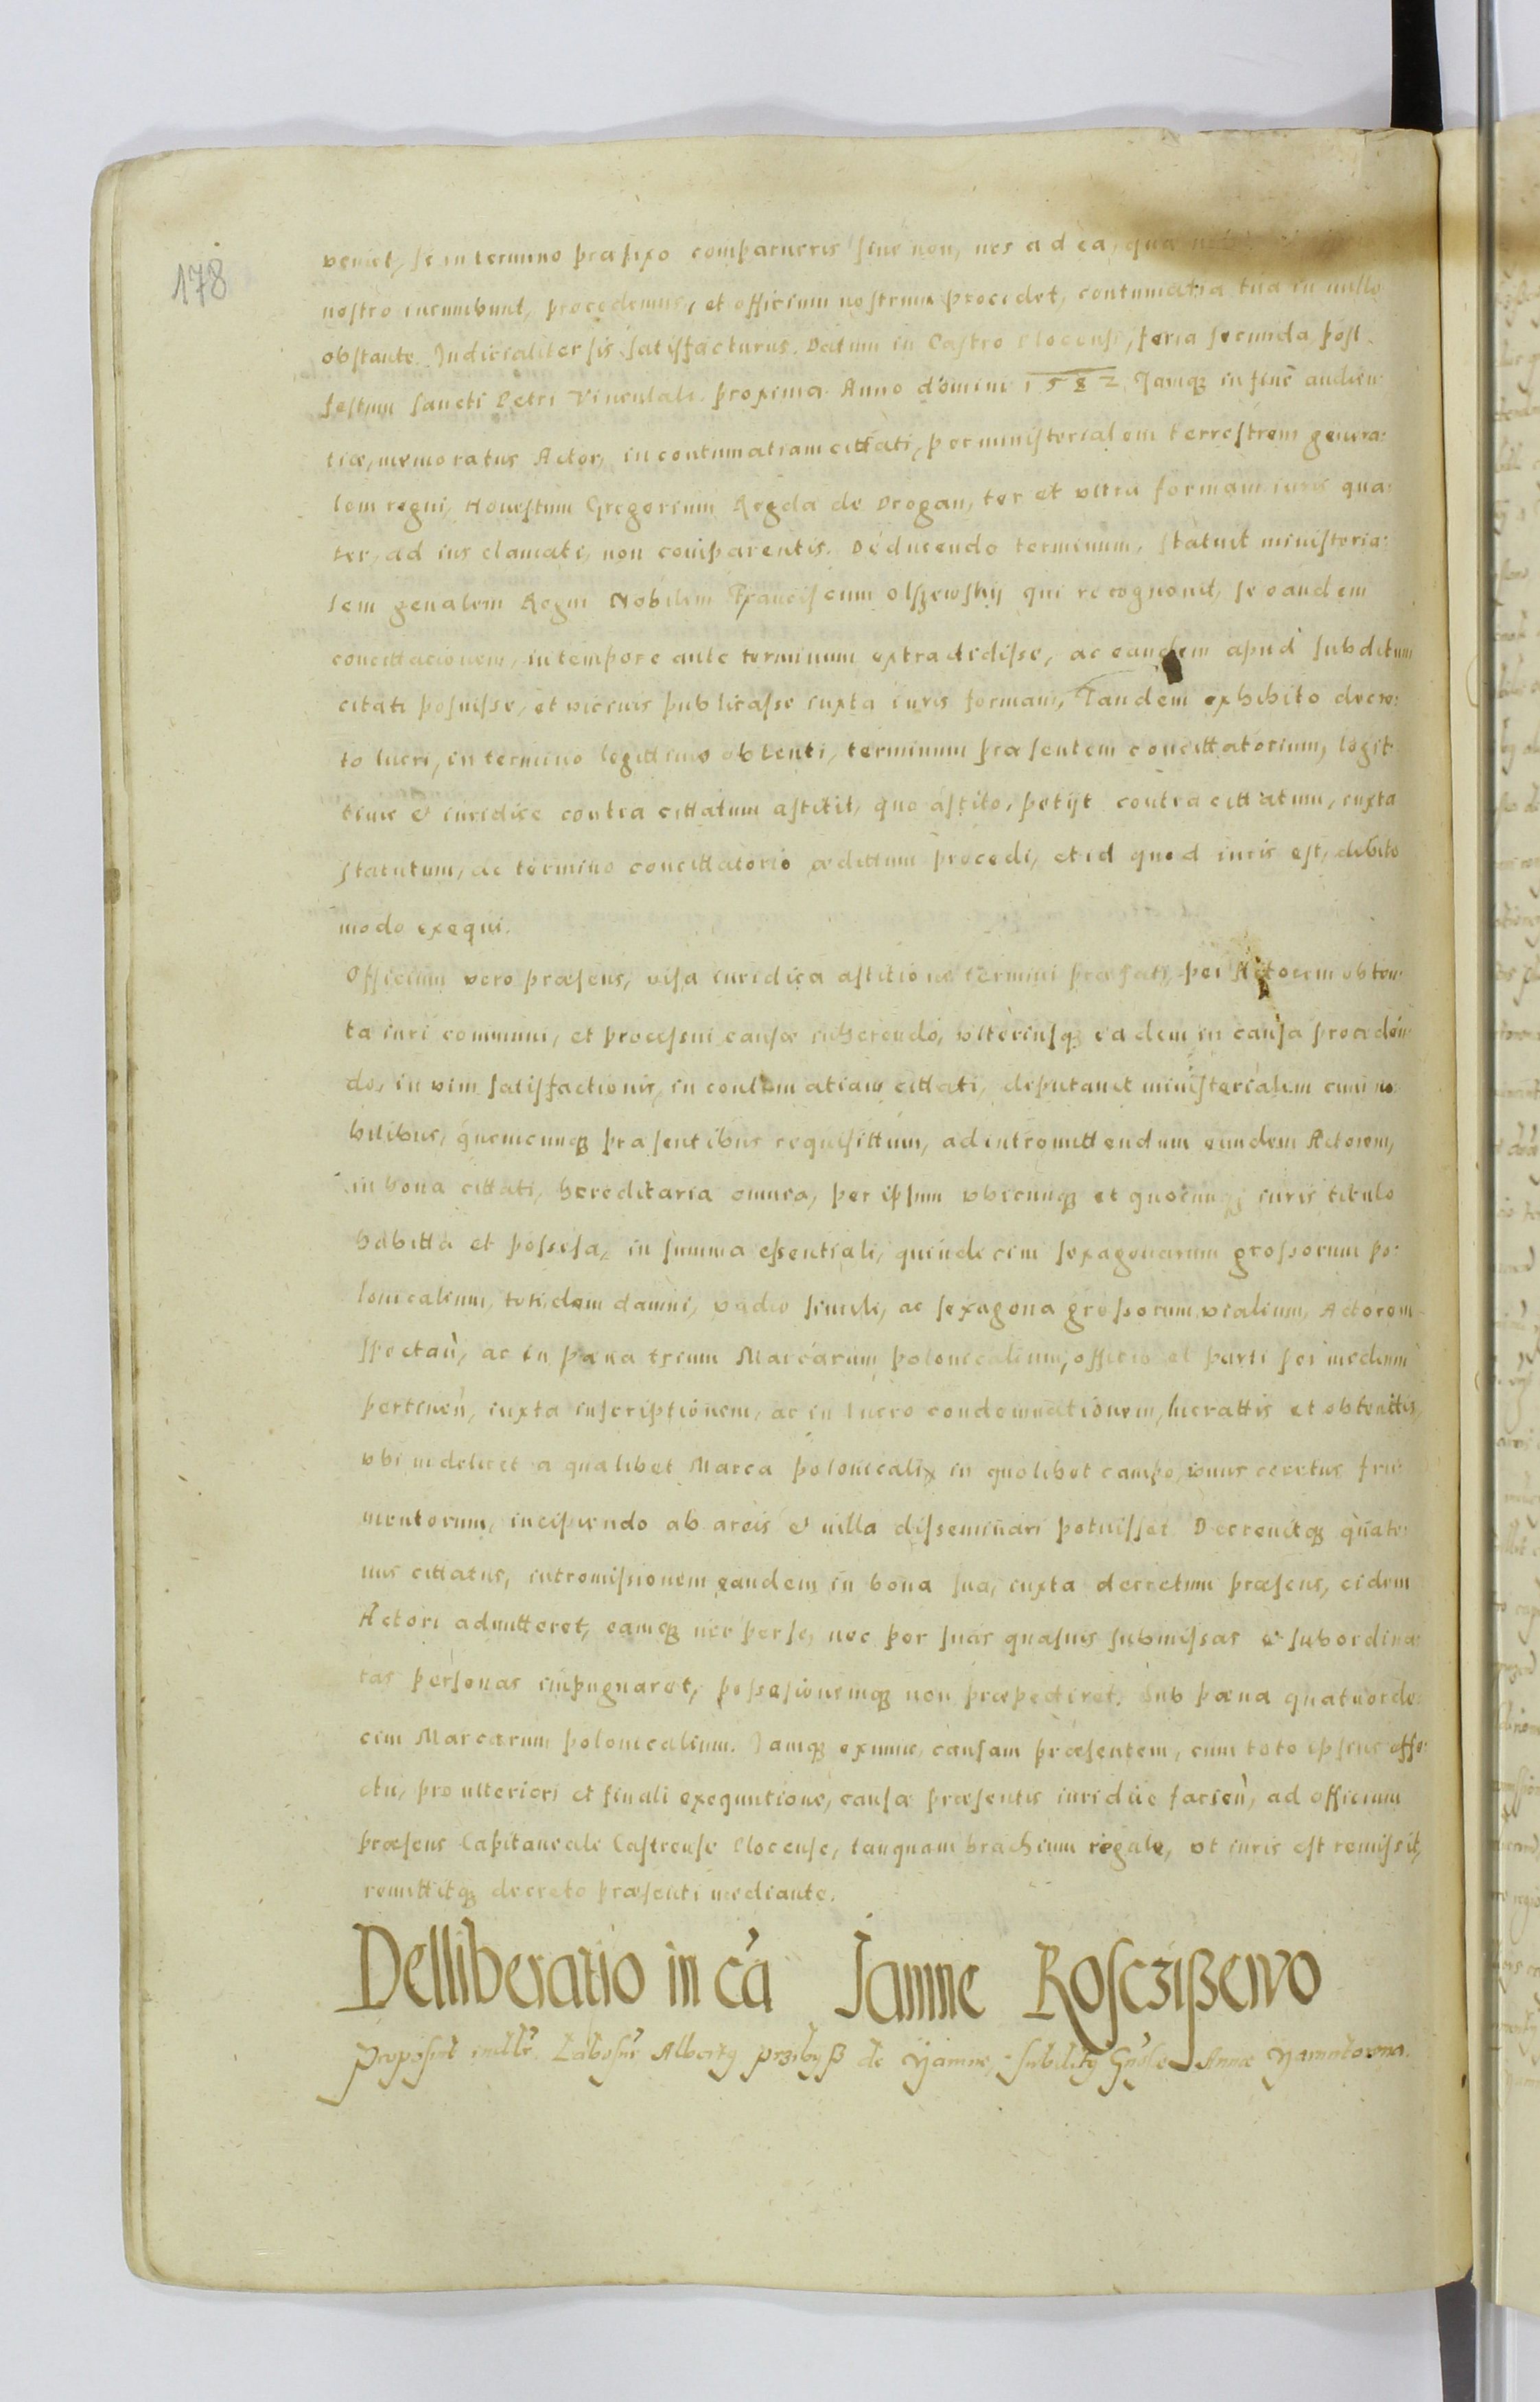 178
veniet, se in termino præfixo comparueris siue non, nos ad ea, qua
nostro incumbunt, procedemus, et officium nostrum procedet, contumatia tua in nullo
obstante. Judicialiter sis satisfacturus. Datum in Castro Plocensi, feria secunda post
festum sancti Petri Vinculati proxima. Anno domini 1582 Jamq3 in fine audien
tiæ, memoratus Actor, in contumatiam cittati, per ministerialem terrestrem genera:
lem regni, Honestum Gregorium Regda de Drogan, ter et vltra formam iuris qua:
ter, ad ius clamati, non comparentis. Deducendo terminum, statuit ministeria:
lem genalem Regni Nobilem Franciscum Olszewskij qui recognouit, se eandem
concittacionem, in tempore ante terminum extradidisse, ac eandem apud subditum
citati posuisse, et vicinis publicasse iuxta iuris formam, Tandem exhibito decre:
to lucri, in termino legittimo obtenti, terminum præsentem concittatorium, legit
time & iuridice contra cittatum astitit, quo astito, petijt contra cittatum, iuxta
statutum, de termino concittatorio ædittum procedi, et id quod iuris est, debito
modo exequi.
Officium vero præsens, visa iuridica astitione termini præfati, per Actorem obten
ta iuri communi, et processui causæ inherendo, vlteriusq3 eadem in causa proceden
do, in vim satisfactionis, in contumatiam cittati, deputauit ministerialem cum no
bilibus, quemcunq3 præsentibus requisittum, ad intromittendum eundem Actorem,
in bona cittati, hereditaria omnia, per ipsum vbicunq3 et quocunq3 iuris titulo
habitta et possesa, in summa essentiali, quindecim sexagenarum grossorum po:
lonicalium, totidem damni, vadio simili, ac sexagena grossorum vialium, Actorem
spectan, ac in pæna trium Marcarum polonicalium, officio et parti per medium
pertinen, iuxta inscriptionem, ac in lucro condemnationem, lucrattis et obtenttis,
vbi videlicet a qualibet Marca polonicali in quolibet campo, vnus coretus fru:
mentorum, incipiendo ab areis & villa disseminari potuisset Decreuitq3 quate:
nus cittatus, intromissionem eandem in bona sua, iuxta decretum præsens, eidem
Actori admitteret, eamq3 nec per se, nec per suas quasuis submissas & subordina:
tas personas impugnaret, possesionemq3 non præpediret. Sub pæna quatuorde:
cim Marcarum polonicalium. Jamq3 exnunc, causam præsentem, cum toto ipsius effe:
ctu, pro vlteriori et finali exequutione, causæ præsentis iuridice facien, ad officium
præsens Capitaneale Castrense Plocense, tanquam brachium regale, vt iuris est remissit,
remittitq3 decreto præsenti mediante.
Delliberatio in ca Jamne Roscziszewo
Proposint Labosus Alberty Przibyß de Yamne, subdity Gnsle Annæ Yamntowna.